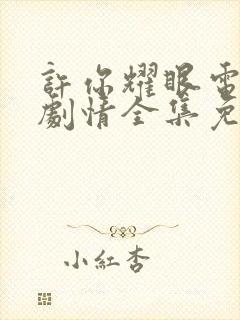 許你耀眼電
劇情全集免
小紅杏